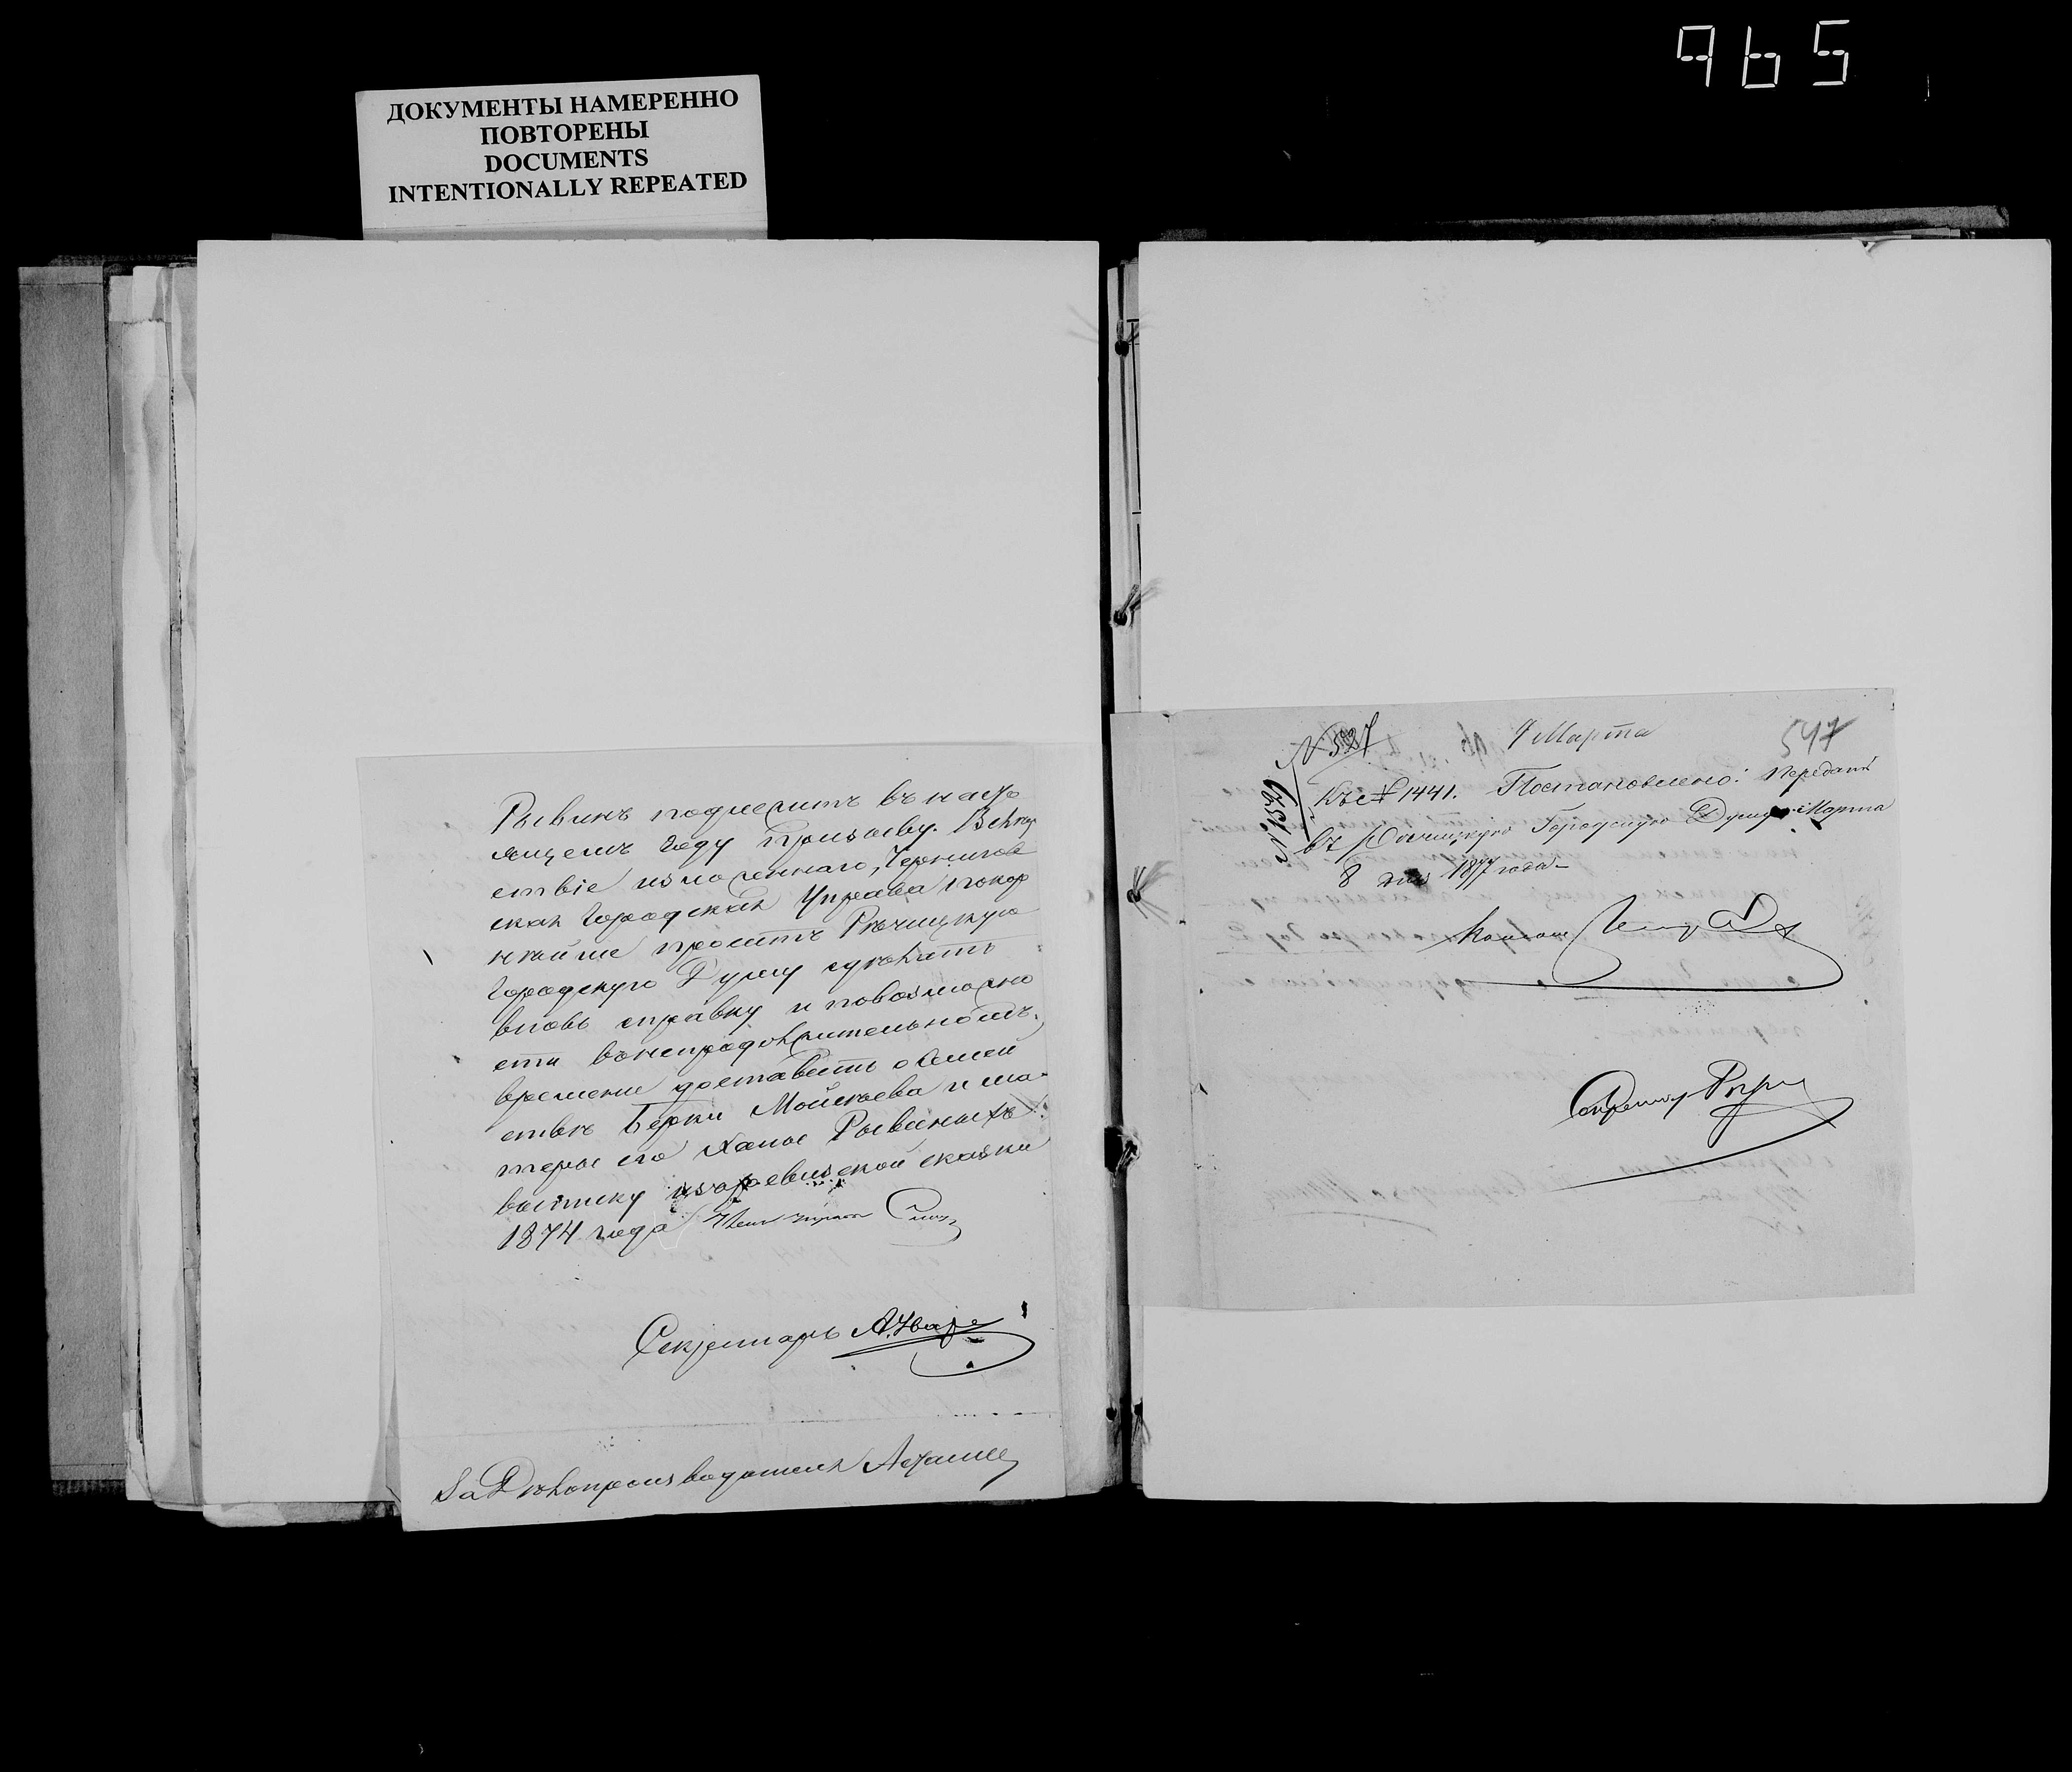 965
ДОКУМЕНТЫ НАМЕРЕННО
ПОВТОРЕНЫ
DOCUMENTS
INTENTIONALLY REPEATED
Рывинъ подлежитъ въ насто
ящемъ году призыву. Вслѣд
ствіе изложеннаго, Чернигов
ская Городская Управа покор
нѣйше проситъ Рѣчицкую
Городскую Думу сдѣлать
вновь справку и повозможно
сти въ непродолжительномъ
времени доставить о семей
ствѣ Берки Мойсѣева и ма-
тери его Ханы Рывиныхъ
выписку изъ ревизской сказки
1874 года Членъ Управы
Секретарь
За Дѣлопроизводителя
547
Марта
Къ № 1441. Постановлено: передать
въ Рѣчицкую Городскую Думу Марта
8 дня 1877 года
Секретарь